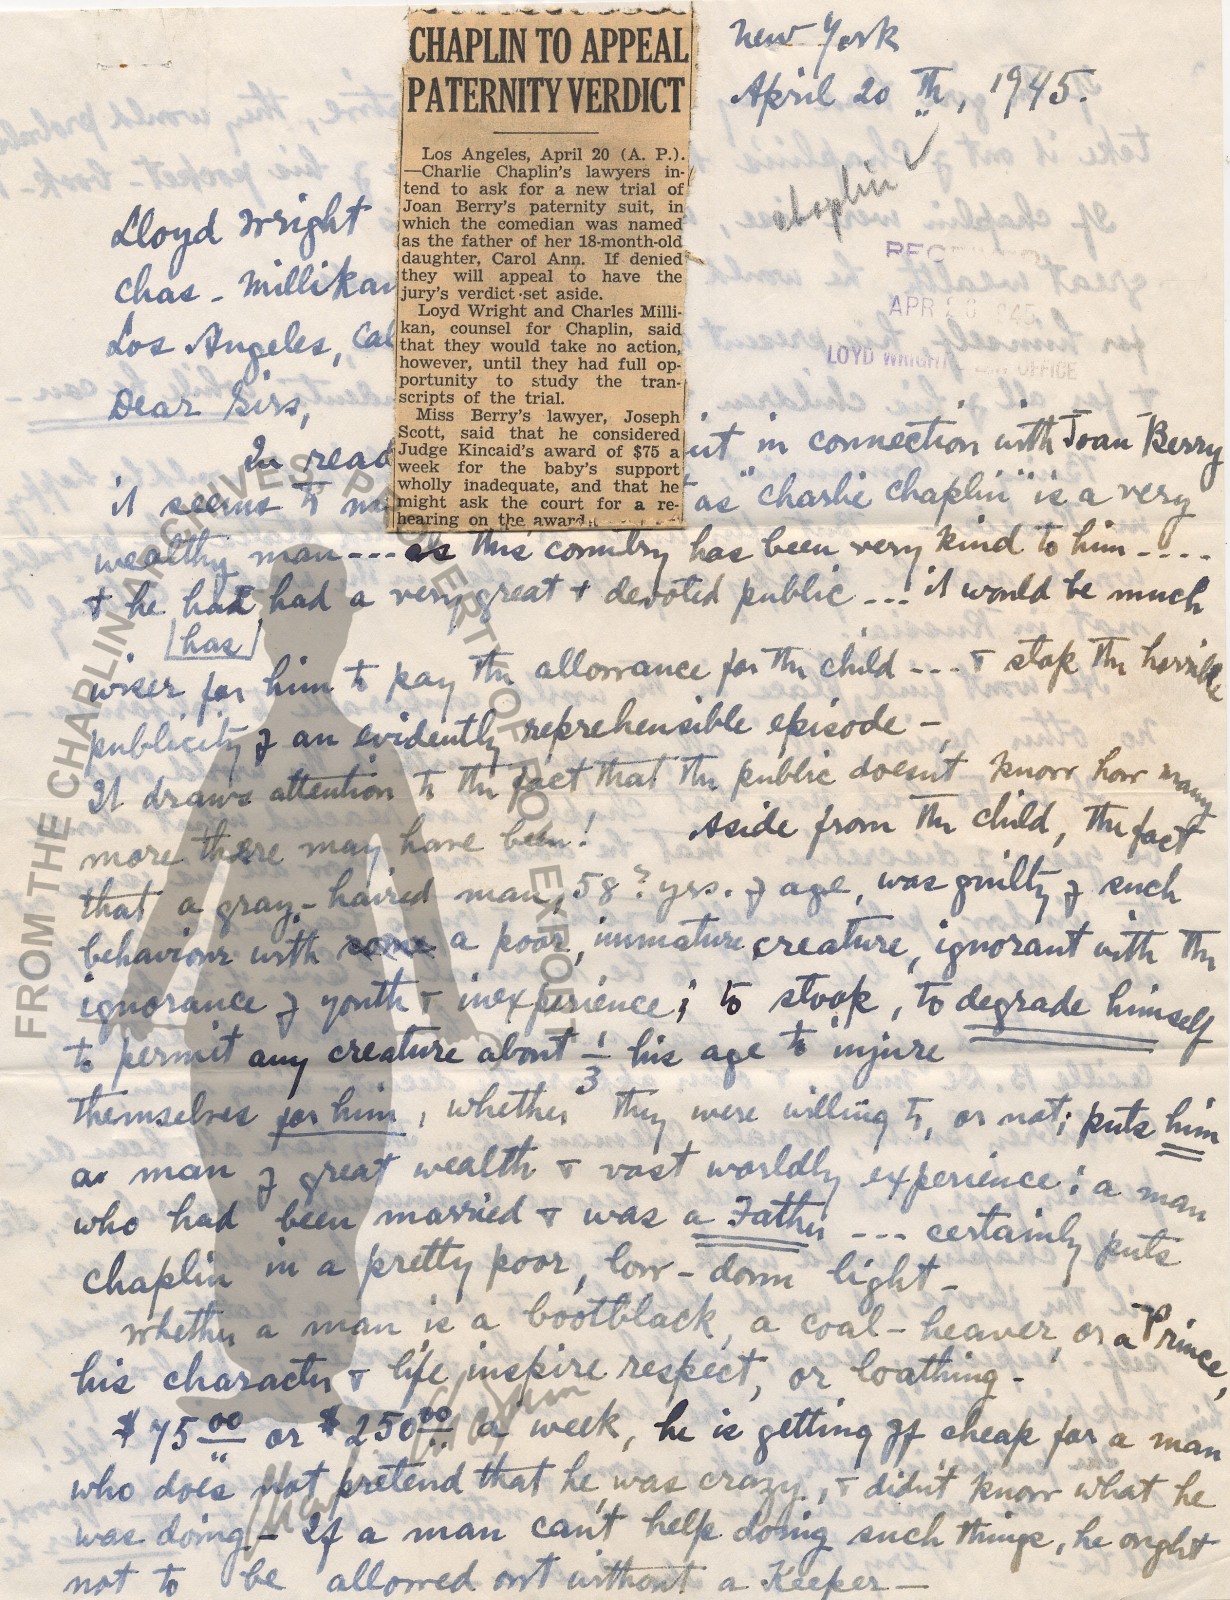 CHAPLIN TO APPEAL
PATERNITY VERDICT
Los Angeles, April 20 (A. P.).
—Charlie Chaplin's lawyers in-
tend to ask for a new trial of
Joan Berry's paternity suit, in
which the comedian was named
as the father of her 18-month-old
daughter, Carol Ann. If denied
they will appeal to have the
jury's verdict set aside.
Loyd Wright and Charles Milli-
kan, counsel for Chaplin, said
that they would take no action,
however, until they had full op-
portunity to study the tran-
scripts of the trial.
Miss Berry's lawyer, Joseph
Scott, said that he considered
Judge Kincaid's award of $75 a
week for the baby's support
wholly inadequate, and that he
might ask the court for a re-
hearing on the award.
New York
April 20 th, 1945.
chaplin
APR 26 1945
LOYD WRIGHT OFFICE
Lloyd Wright
Chas - Millikan
Los Angeles, Cal
Dear Sirs,
In read it in connection with Joan Berry
it seems to me as "Charlie Chaplin" is a very
wealthy man --- as this country has been very kind to him ----
+ he had had a very great + devoted public --- it would be much
[has]
wiser for him to pay the allowance for the child --- + stop the horrible
publicity of an evidently reprehensible episode -
It draws attention to the fact that the public doesn't know how many
more there may have been! Aside from the child, the fact
that a gray-haired man, 58? yrs. of age, was guilty of such
behaviour with a poor, immature creature, ignorant with the
ignorance of youth + inexperience; to stoop, to degrade himself
to permit any creature about 1/3 his age to injure
themselves for him, whether they were willing to, or not; puts him
a man of great wealth + vast worldly experience: a man
who had been married + was a Father --- certainly puts
Chaplin in a pretty poor, low-down light -
Whether a man is a bootblack, a coal-heaver, or a Prince,
his character + life inspire respect, or loathing -
$75.00 or $250.00 a week, he is getting off cheap for a man
who does not pretend that he was crazy, + didn't know what he
was doing - If a man can't help doing such things, he ought
not to be allowed out without a Keeper -
FROM THE CHAPLIN ARCHIVES PROPERTY OF ROY EXPORT